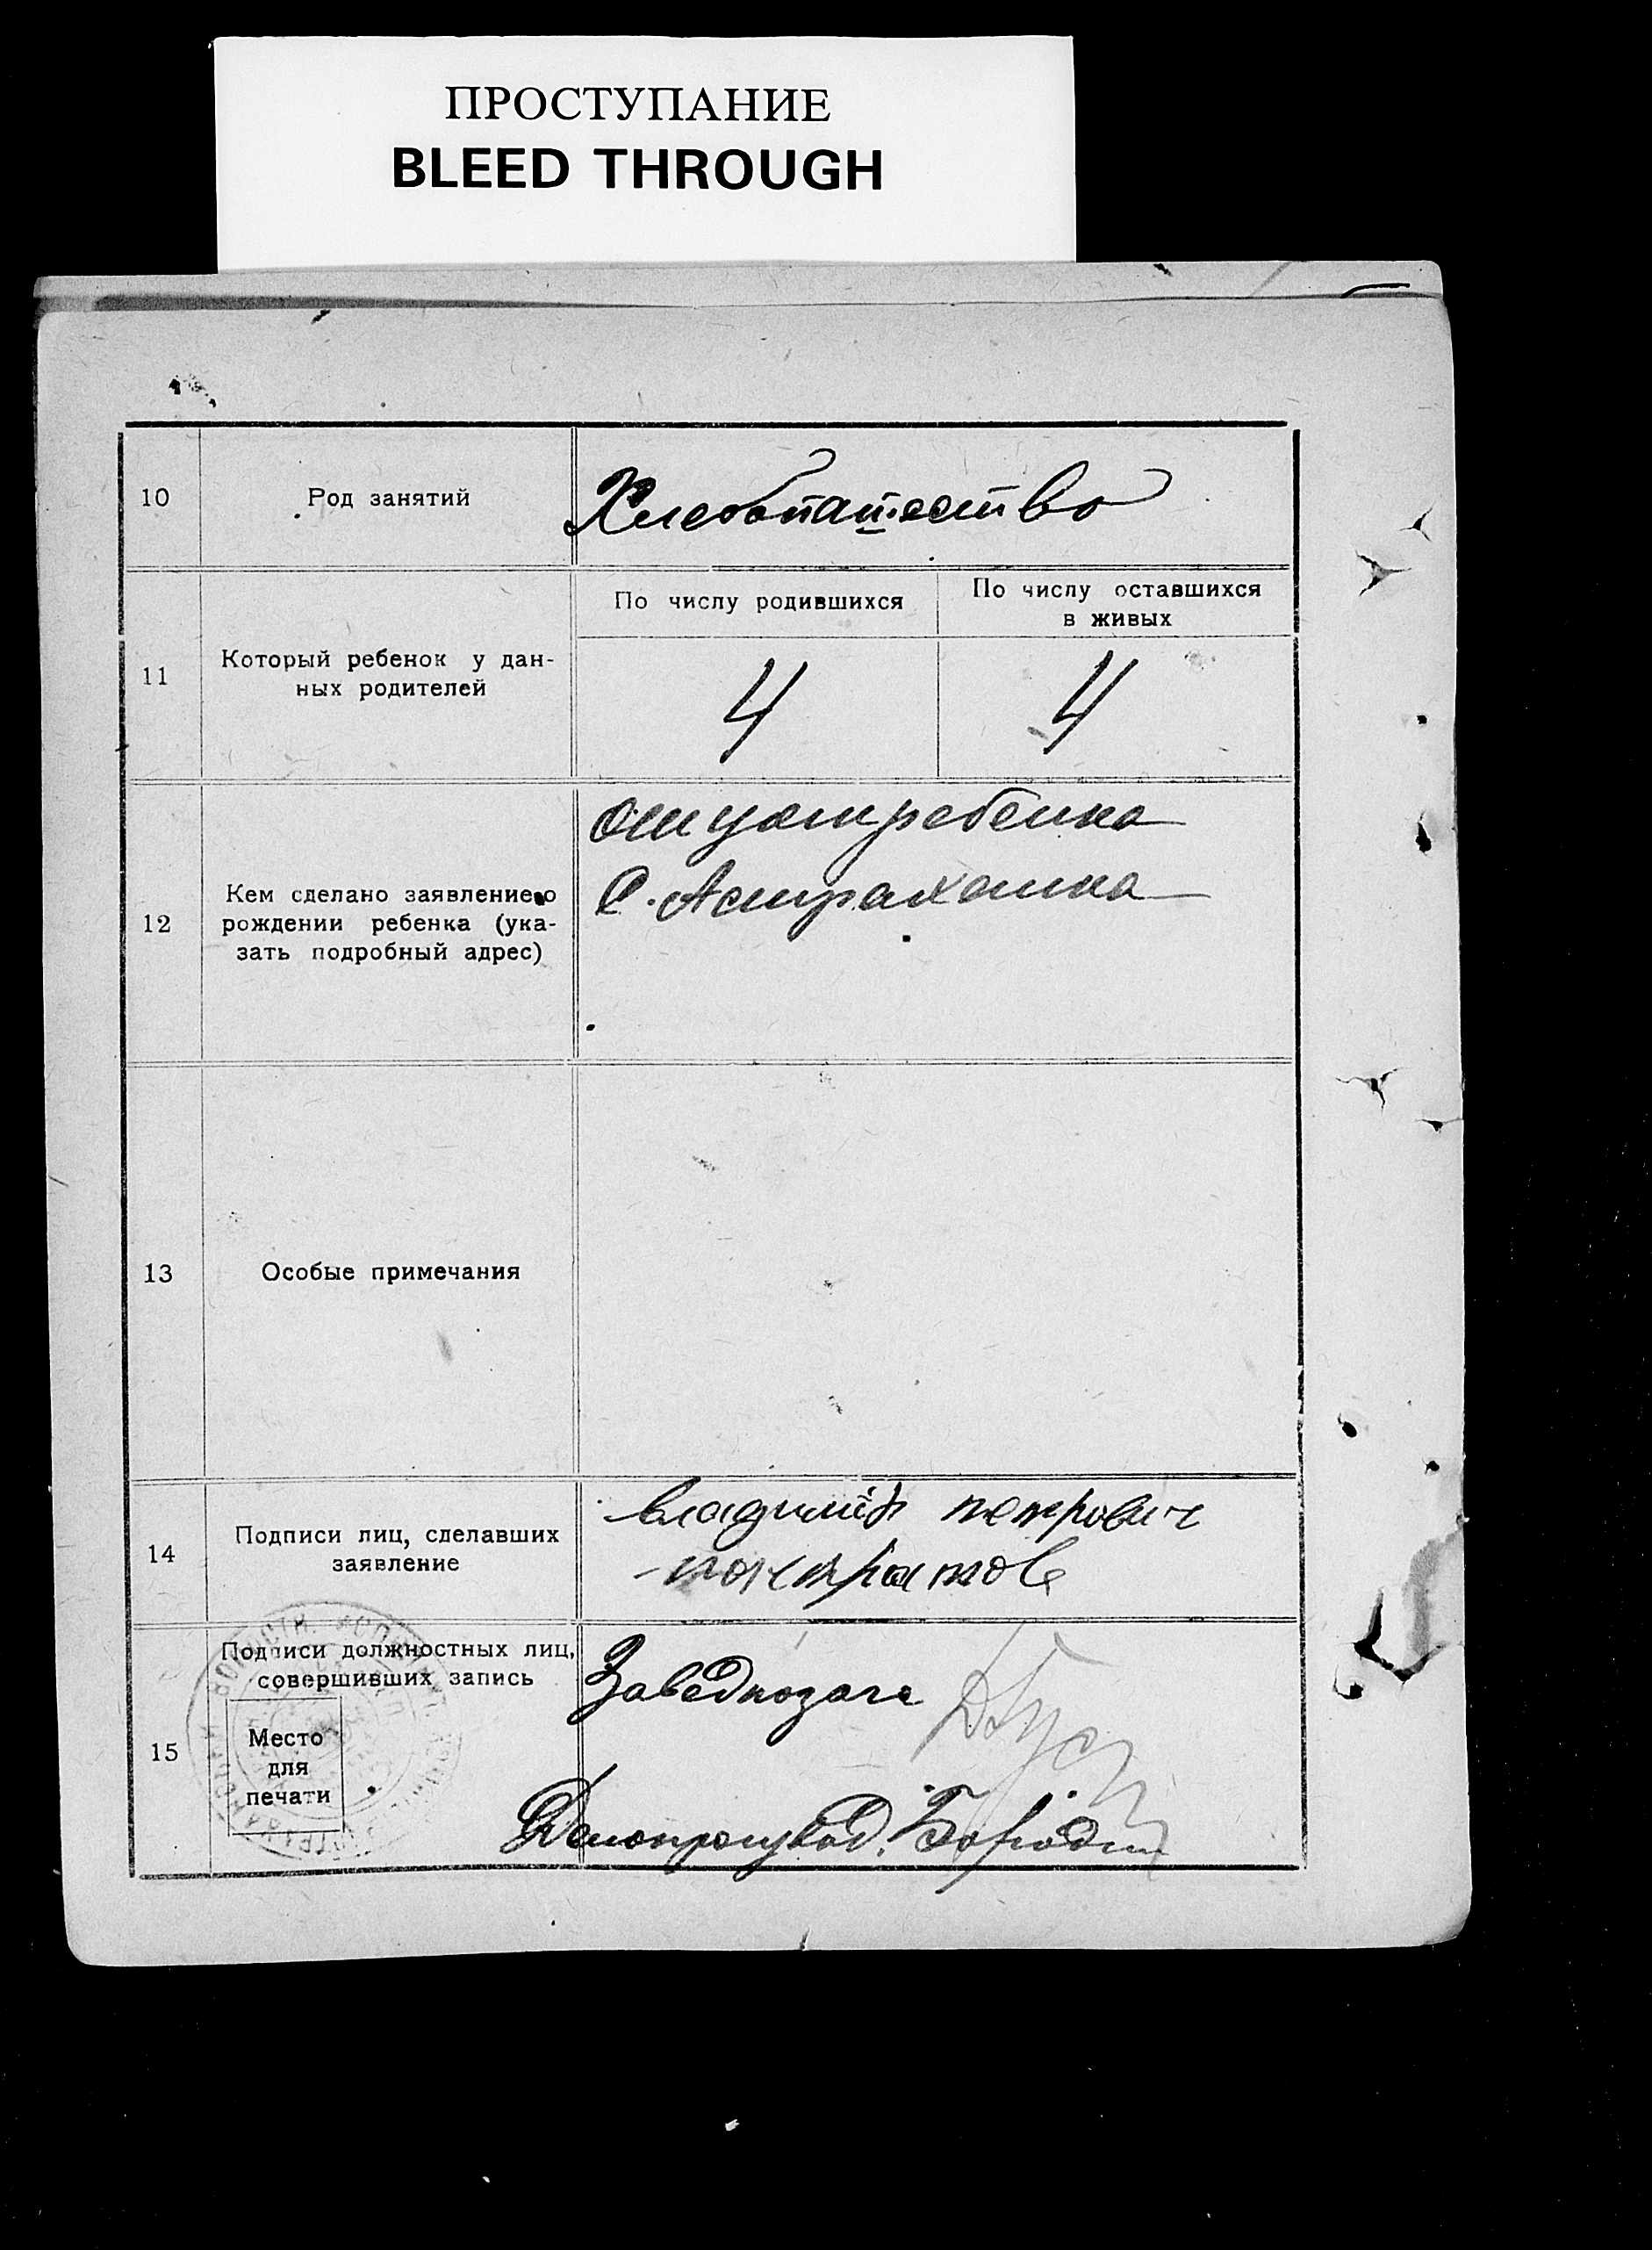 ПРОСТУПАНИЕ
BLEED THROUGH
10
Род занятий
Хлебопашество
11
Который ребенок у дан-
ных родителей
По числу родившихся
По числу оставшихся
в живых
4
4
12
Кем сделано заявление о
рождении ребенка (ука-
зать подробный адрес)
Отцом ребенка
С. Астраханка
13
Особые примечания
14
Подписи лиц, сделавших
заявление
владимир петрович
15
Подписи должностных лиц,
совершивших запись
Место
для
печати
Завед
Делопроизвод.